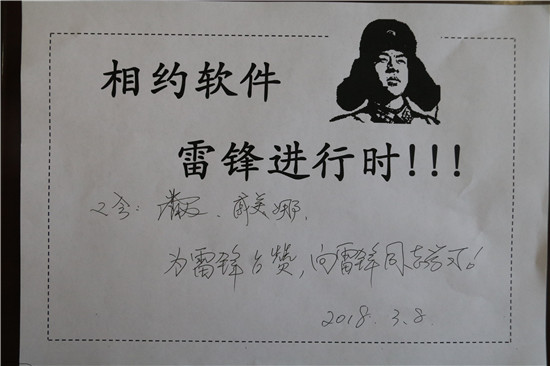 相约软件
雷锋进行时!!!
美娜.
为雷锋点赞,向雷锋同志学习!
2018.3.8